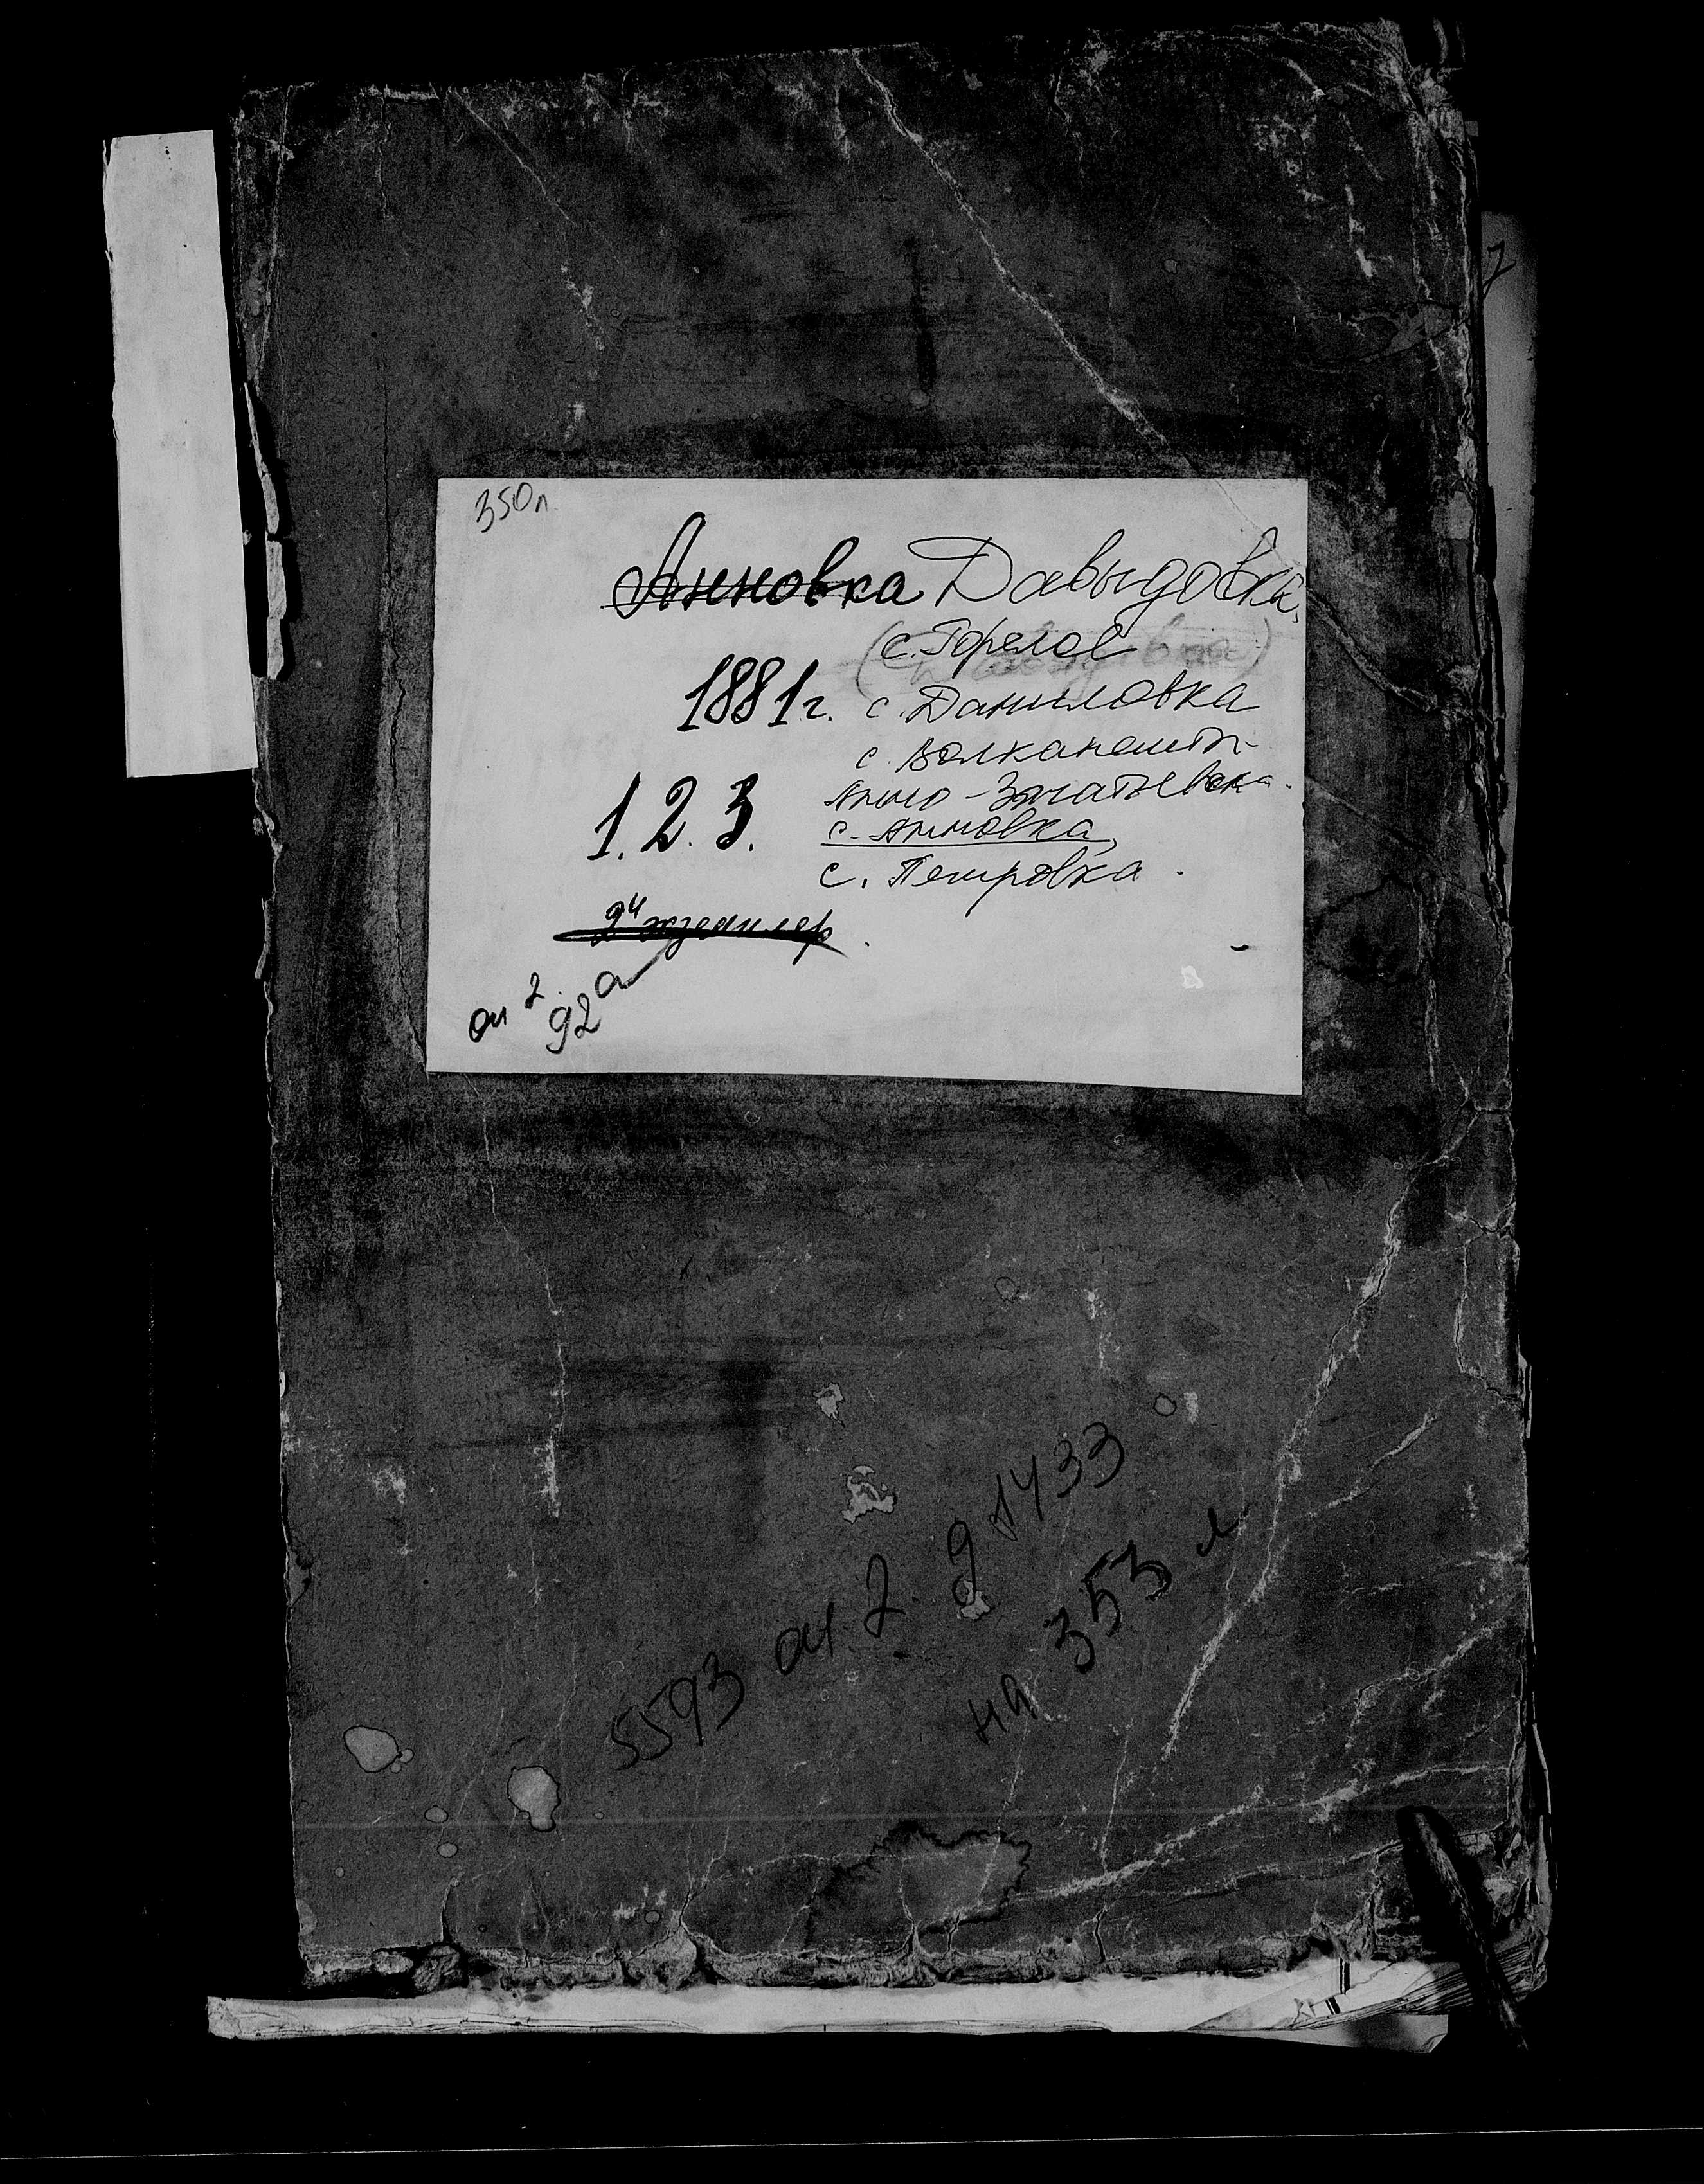 350л
Анновка Давыдовка,
(с. Горелое
1881 г. с. Даниловка
с. Волканешты
Анно-Златьевска.
1. 2. 3. с. Анновка,
с. Петровка.
2й экземпляр
оп 2. 92а
5593 оп. 2. д 1433
на 353 л